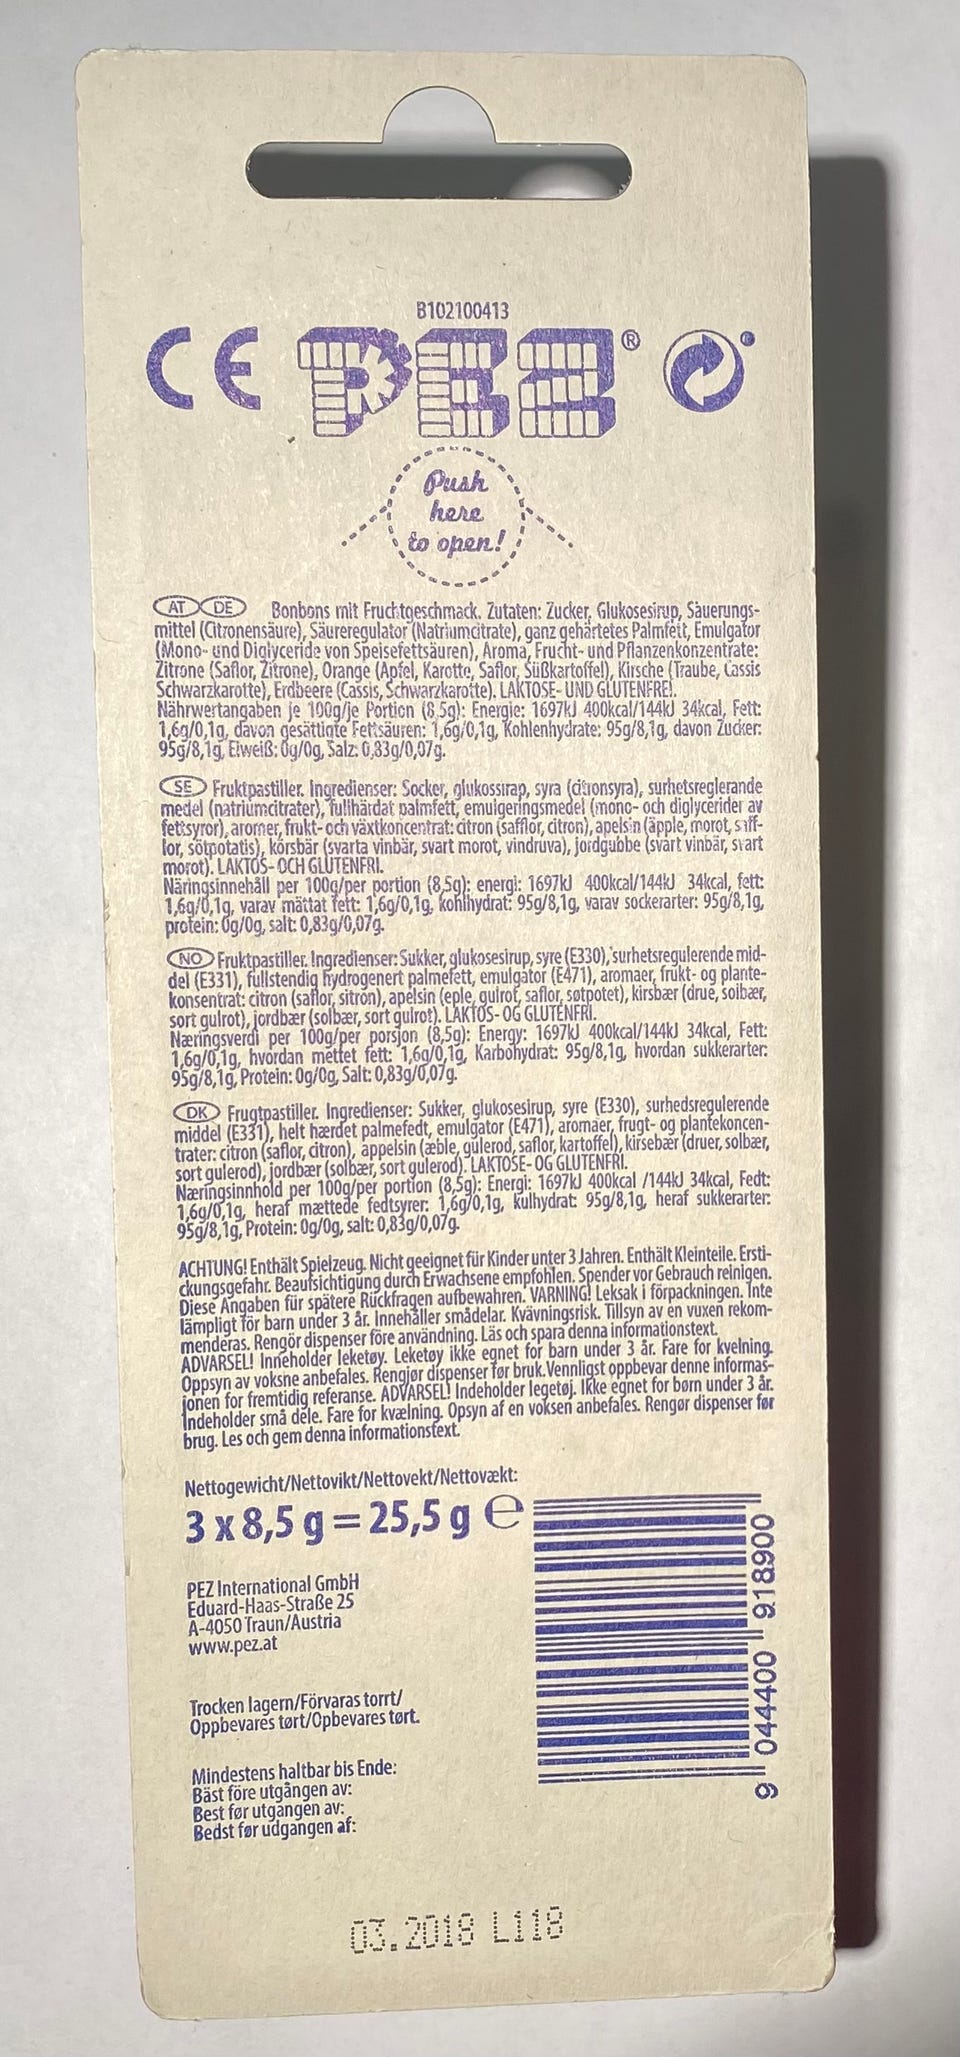 B102100413
CE PEZ®
Push
here
to open!
AT DE Bonbons mit Fruchtgeschmack. Zutaten: Zucker, Glukosesirup, Säuerungs-
mittel (Citronensäure), Säureregulator (Natriumcitrate), ganz gehärtetes Palmfett, Emulgator
(Mono- und Diglyceride von Speisefettsäuren), Aroma, Frucht- und Pflanzenkonzentrate:
Zitrone (Saflor, Zitrone), Orange (Apfel, Karotte, Saflor, Süßkartoffel), Kirsche (Traube, Cassis
Schwarzkarotte), Erdbeere (Cassis, Schwarzkarotte). LAKTOSE- UND GLUTENFREI.
Nährwertangaben je 100g/je Portion (8,5g): Energie: 1697kJ 400kcal/144kJ 34kcal, Fett:
1,6g/0,1g, davon gesättigte Fettsäuren: 1,6g/0,1g, Kohlenhydrate: 95g/8,1g, davon Zucker:
95g/8,1g, Eiweiß: 0g/0g, Salz: 0,83g/0,07g.
SE Fruktpastiller. Ingredienser: Socker, glukossirap, syra (citronsyra), surhetsreglerande
medel (natriumcitrater), fullhärdat palmfett, emulgeringsmedel (mono- och diglycerider av
fettsyror), aromer, frukt- och växtkoncentrat: citron (safflor, citron), apelsin (äpple, morot, saff-
lor, sötpotatis), körsbär (svarta vinbär, svart morot, vindruva), jordgubbe (svart vinbär, svart
morot). LAKTOS- OCH GLUTENFRI.
Näringsinnehåll per 100g/per portion (8,5g): energi: 1697kJ 400kcal/144kJ 34kcal, fett:
1,6g/0,1g, varav mättat fett: 1,6g/0,1g, kohlhydrat: 95g/8,1g, varav sockerarter: 95g/8,1g,
protein: 0g/0g, salt: 0,83g/0,07g.
NO Fruktpastiller. Ingredienser: Sukker, glukosesirup, syre (E330), surhetsregulerende mid-
del (E331), fullstendig hydrogenert palmefett, emulgator (E471), aromaer, frukt- og plante-
konsentrat: citron (saflor, sitron), apelsin (eple, gulrot, saflor, søtpotet), kirsbær (drue, solbær,
sort gulrot), jordbær (solbær, sort gulrot). LAKTOS- OG GLUTENFRI.
Næringsverdi per 100g/per porsjon (8,5g): Energy: 1697kJ 400kcal/144kJ 34kcal, Fett:
1,6g/0,1g, hvordan mettet fett: 1,6g/0,1g, Karbohydrat: 95g/8,1g, hvordan sukkerarter:
95g/8,1g, Protein: 0g/0g, Salt: 0,83g/0,07g.
DK Frugtpastiller. Ingredienser: Sukker, glukosesirup, syre (E330), surhedsregulerende
middel (E331), helt hærdet palmefedt, emulgator (E471), aromaer, frugt- og plantekoncen-
trater: citron (saflor, citron), appelsin (æble, gulerod, saflor, kartoffel), kirsebær (druer, solbær,
sort gulerod), jordbær (solbær, sort gulerod). LAKTOSE- OG GLUTENFRI.
Næringsinnhold per 100g/per portion (8,5g): Energi: 1697kJ 400kcal /144kJ 34kcal, Fedt:
1,6g/0,1g, heraf mættede fedtsyrer: 1,6g/0,1g, kulhydrat: 95g/8,1g, heraf sukkerarter:
95g/8,1g, Protein: 0g/0g, salt: 0,83g/0,07g.
ACHTUNG! Enthält Spielzeug. Nicht geeignet für Kinder unter 3 Jahren. Enthält Kleinteile. Ersti-
ckungsgefahr. Beaufsichtigung durch Erwachsene empfohlen. Spender vor Gebrauch reinigen.
Diese Angaben für spätere Rückfragen aufbewahren. VARNING! Leksak i förpackningen. Inte
lämpligt för barn under 3 år. Innehåller smådelar. Kvävningsrisk. Tillsyn av en vuxen rekom-
menderas. Rengör dispenser före användning. Läs och spara denna informationstext.
ADVARSEL! Inneholder leketøy. Leketøy ikke egnet for barn under 3 år. Fare for kvelning.
Oppsyn av voksne anbefales. Rengjør dispenser før bruk. Vennligst oppbevar denne informas-
jonen for fremtidig referanse. ADVARSEL! Indeholder legetøj. Ikke egnet for børn under 3 år.
Indeholder små dele. Fare for kvælning. Opsyn af en voksen anbefales. Rengør dispenser før
brug. Les och gem denna informationstext.
Nettogewicht/Nettovikt/Nettovekt/Nettovækt:
3 x 8,5 g = 25,5 g ℮
PEZ International GmbH
Eduard-Haas-Straße 25
A-4050 Traun/Austria
www.pez.at
Trocken lagern/Förvaras torrt/
Oppbevares tørt/Opbevares tørt.
Mindestens haltbar bis Ende:
Bäst före utgången av:
Best før utgangen av:
Bedst før udgangen af:
9 044400 918900
03.2018 L118